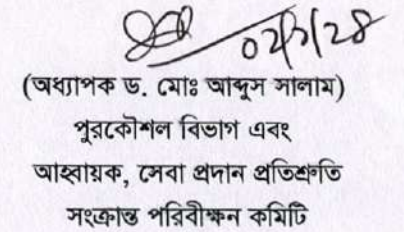 ০২/১/২৪
(অধ্যাপক ড. মোঃ আব্দুস সালাম)
পুরকৌশল বিভাগ এবং
আহবায়ক, সেবা প্রদান প্রতিশ্রুতি
সংক্রান্ত পরিবীক্ষন কমিটি